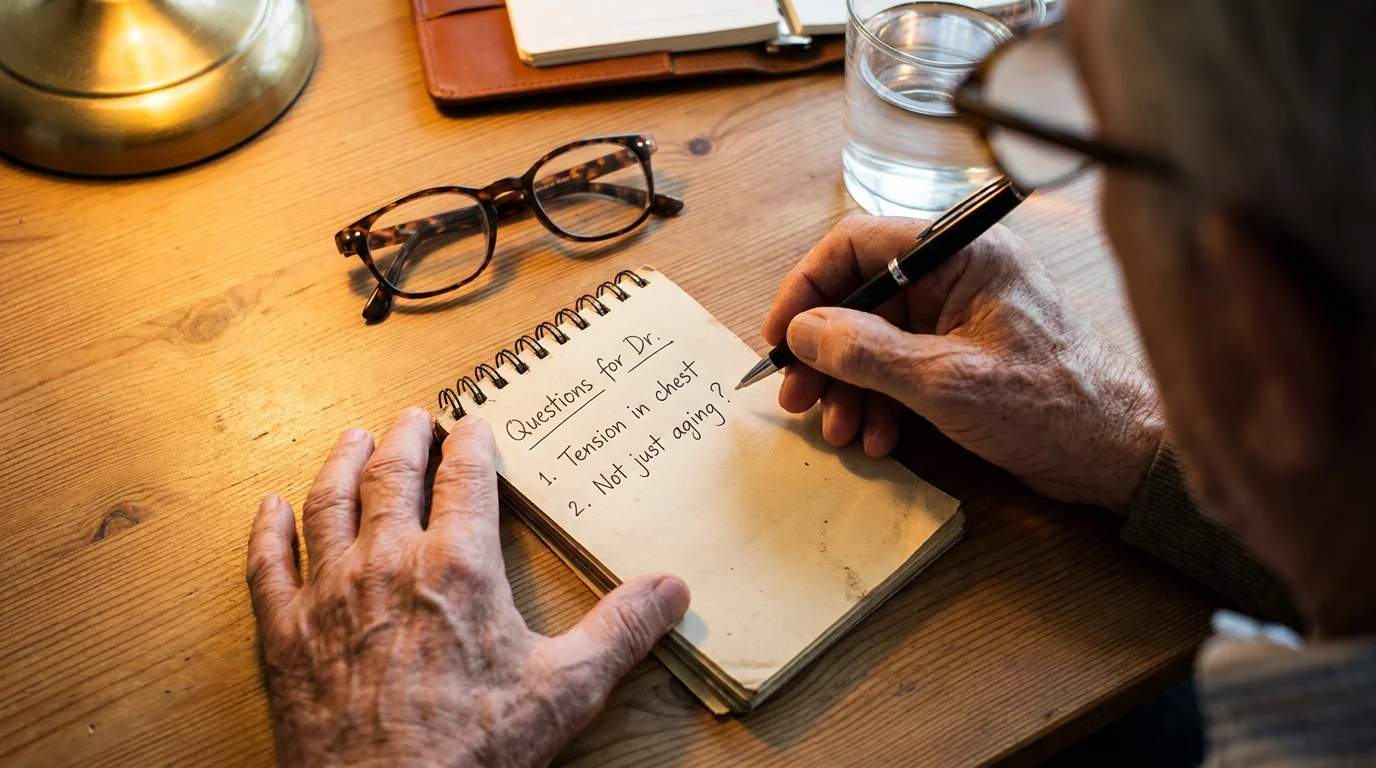 Questions for Dr.
1. Tension in chest
2. Not just aging?